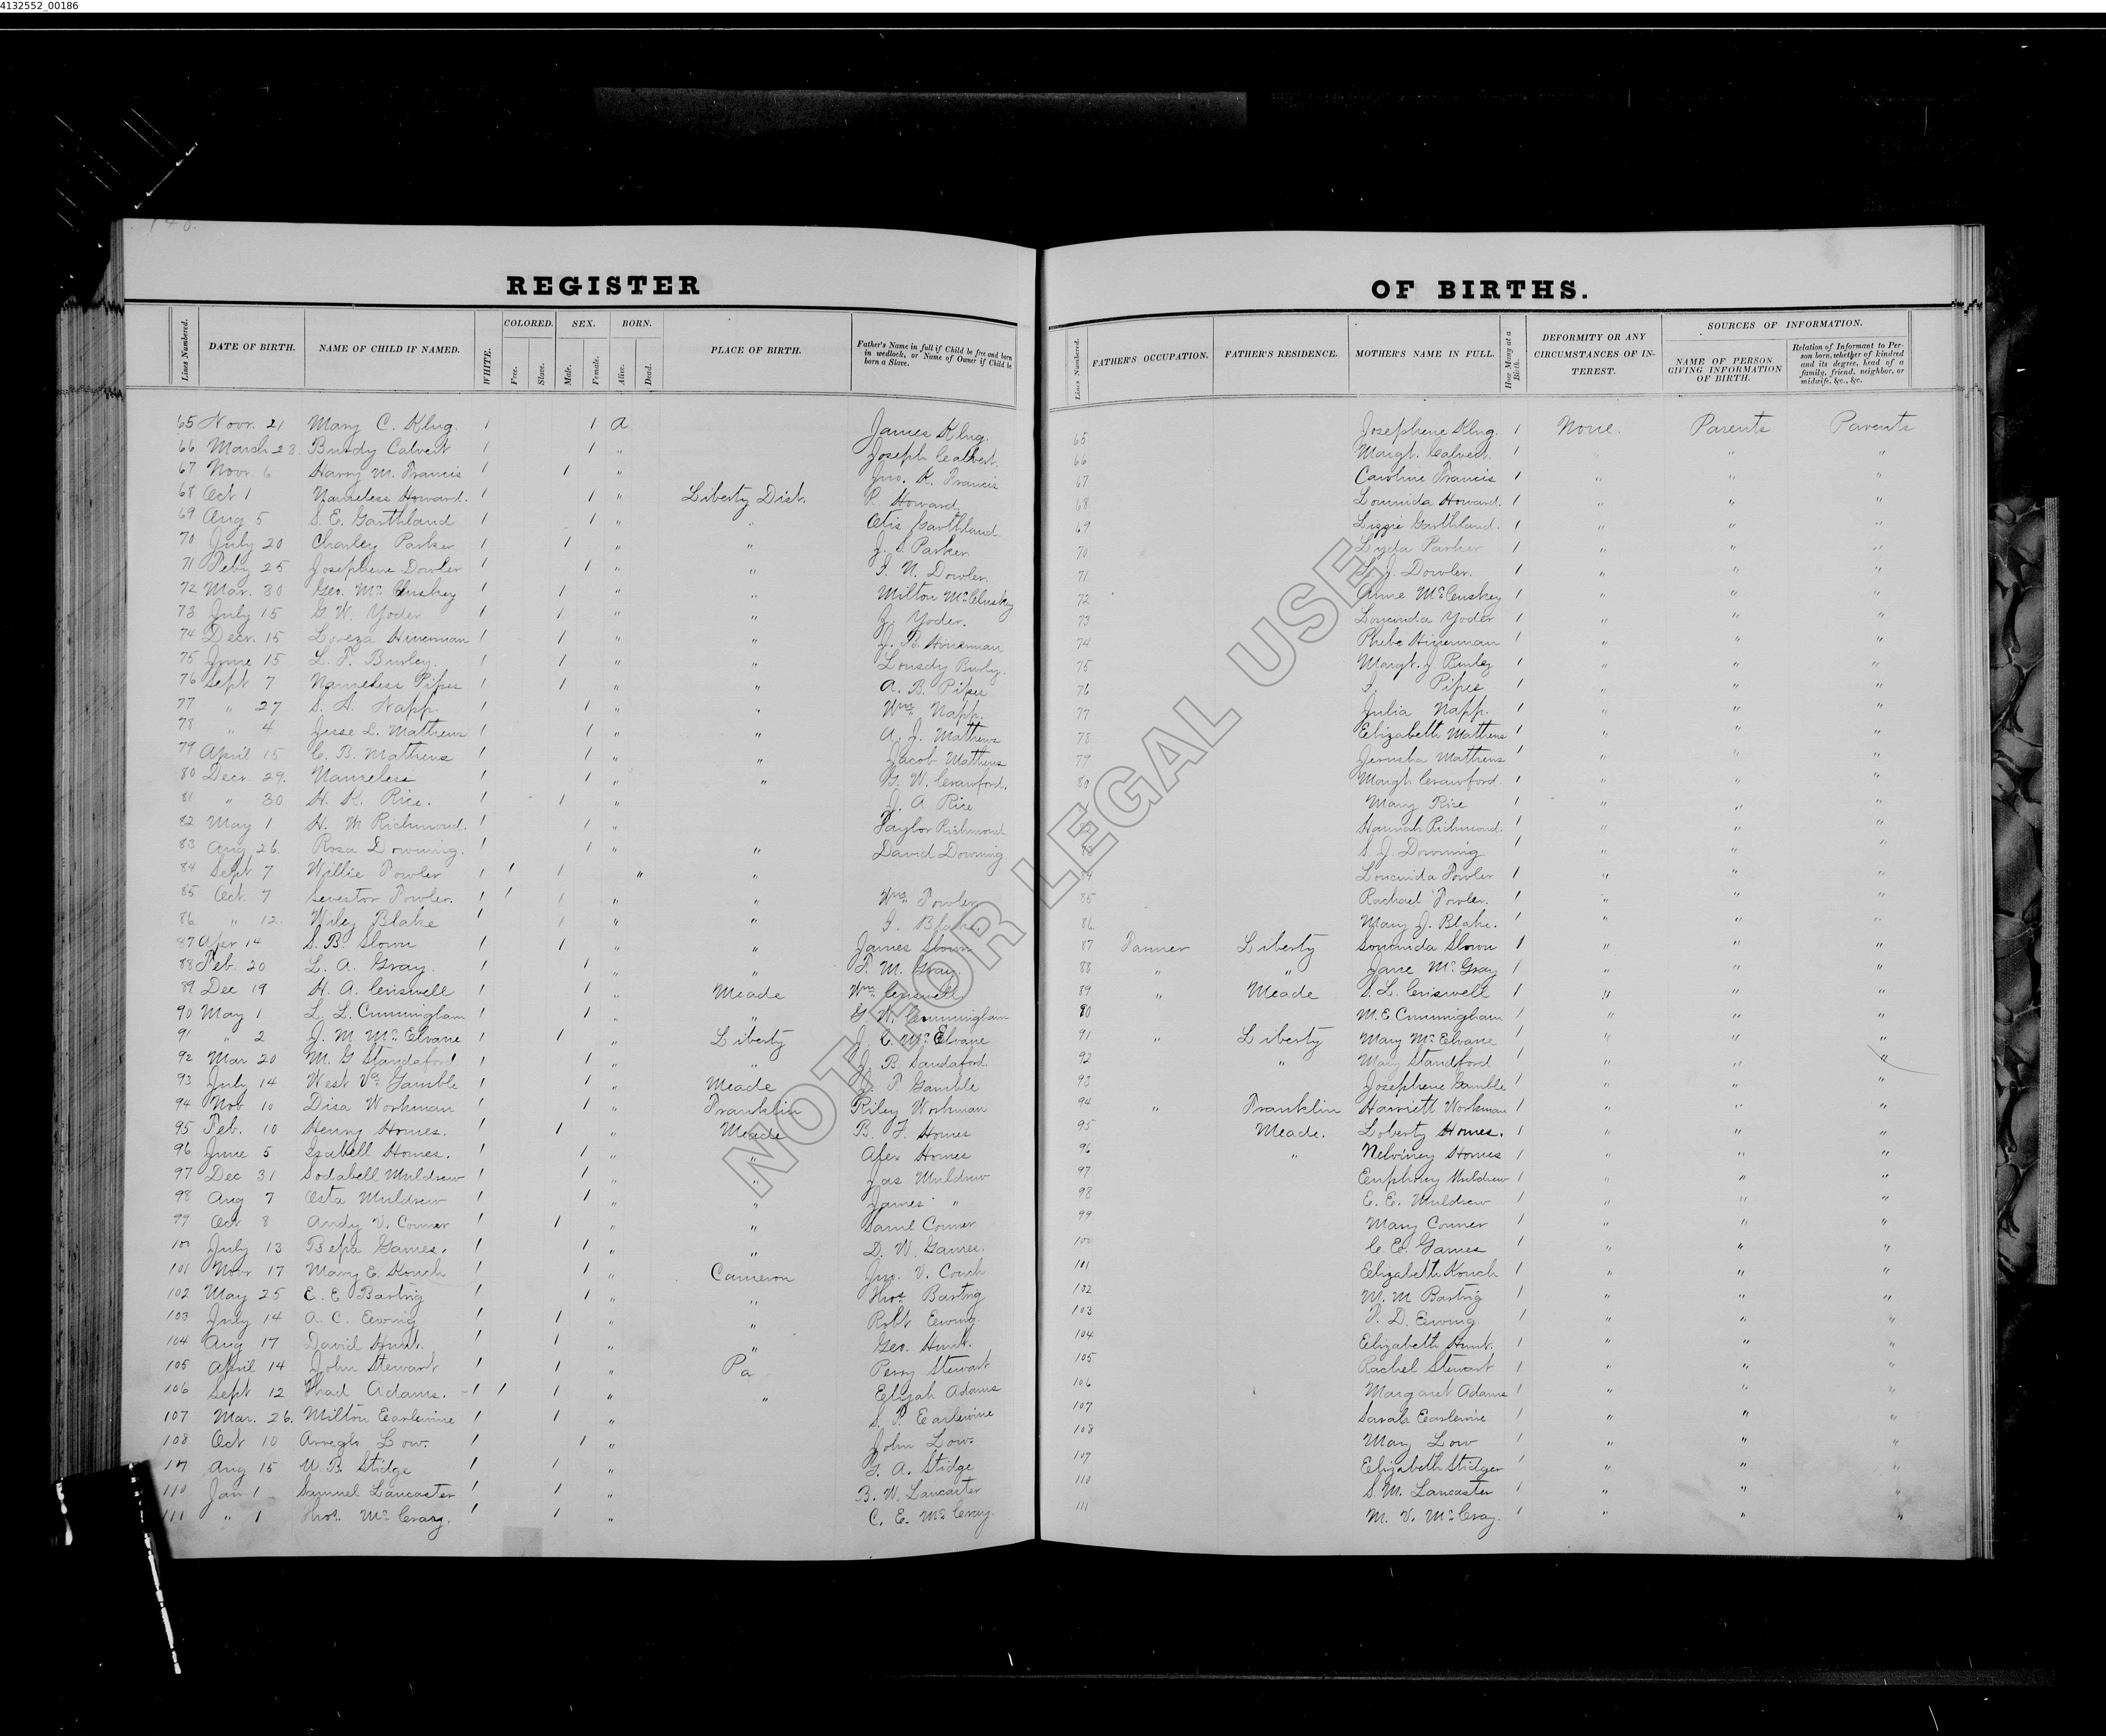 4132552_00186
REGISTER OF BIRTHS.
Lines Numbered. DATE OF BIRTH. NAME OF CHILD IF NAMED. WHITE. COLORED. Free. Slave. SEX. Male. Female. BORN. Alive. Dead. PLACE OF BIRTH. Father's Name in full if Child be free and born in wedlock, or Name of Owner if Child be born a Slave. Lines Numbered. FATHER'S OCCUPATION. FATHER'S RESIDENCE. MOTHER'S NAME IN FULL. How Many at a Birth. DEFORMITY OR ANY CIRCUMSTANCES OF INTEREST. SOURCES OF INFORMATION. NAME OF PERSON GIVING INFORMATION OF BIRTH. Relation of Informant to Person born, whether of kindred and its degree, head of a family, friend, neighbor, or midwife, &c., &c.
65 Novr. 21 Mary C. Klug. 1 1 a James Klug. 65 Josephene Klug. 1 None. Parents Parents
66 March 23. Burdy Calvert 1 1 " Joseph Calvert. 66 Margt. Calvert. 1 " " "
67 Novr. 6 Harry M. Francis 1 1 " Jno. K. Francis 67 Caroline Francis 1 " " "
68 Oct 1 Nameless Howard. 1 1 " Liberty Dist. R. Howard. 68 Lourinda Howard. 1 " " "
69 Aug 5 S. E. Garthland 1 1 " " Otis Garthland 69 Lizzie Garthland. 1 " " "
70 July 20 Charley Parker 1 1 " " J. S. Parker 70 Lyda Parker 1 " " "
71 Feby 25 Josephene Dowler 1 1 " " I. N. Dowler. 71 L. J. Dowler. 1 " " "
72 Mar. 30 Geo. Mc Cluskey 1 1 " " Milton McCluskey 72 Anne McCluskey 1 " " "
73 July 15 G. W. Yoder 1 1 " " Z. Yoder. 73 Loucinda Yoder 1 " " "
74 Decr. 15 Loreza Hinerman 1 1 " " J. B. Hinerman 74 Phebe Hinerman 1 " " "
75 June 15 L. F. Burley. 1 1 " " Lousdy Burley. 75 Margt. J Burley 1 " " "
76 Sept 7 Nameless Pipes 1 1 " " A. B. Pipes 76 S. Pipes 1 " " "
77 " 27 S. A. Napp. 1 1 " " Wm. Napp. 77 Julia Napp. 1 " " "
78 " 4 Jesse L. Mathews 1 1 " " A. J. Mathews 78 Elizabeth Mathews 1 " " "
79 April 15 C. B. Mathews 1 1 " " Jacob Mathews 79 Jerusha Mathews 1 " " "
80 Decr. 29. Nameless 1 1 " " G. W. Crawford. 80 Margt Crawford. 1 " " "
81 " 30 H. K. Rice. 1 1 " J. A Rice Mary Rice 1 " " "
82 May 1 H. M Richmond. 1 1 " Taylor Richmond 82 Hannah Richmond. 1 " " "
83 Aug 26. Rosa Downing. 1 1 " " David Downing 83 S. J. Downing 1 " " "
84 Sept 7 Willie Fowler 1 1 1 " " 84 Loucinda Fowler 1 " " "
85 Oct 7 Sevestor Fowler. 1 1 1 " " Wm. Fowler 85 Rachael Fowler. 1 " " "
86 " 12. Wiley Blake 1 1 " " I. Blake. 86 Mary J. Blake. 1 " " "
87 Apr 14 S. B. Slown 1 1 " " James Slown 87 Farmer Liberty Slown 1 " " "
88 Feb. 20 L. A. Gray. 1 1 " " F. M. Gray. 88 " " Jane Mc Gray 1 " " "
89 Dec 19 H. A. Criswell 1 1 " Meade Wm. Criswell 89 " Meade S. L. Criswell 1 " " "
90 May 1 L. L. Cunningham 1 1 " " G W. Cunningham 90 M. E Cunningham 1 " " "
91 " 2 J. M. Mc Elvane 1 1 " Liberty J. C. Mc Elvane 91 " Liberty Mary Mc Elvane 1 " " "
92 Mar 20 M. G Standaford 1 1 " " J. B. Sandaford. 92 " Mary Standford 1 " " "
93 July 14 West Va. Gamble 1 1 " Meade J. P. Gamble 93 Josephene Gamble 1 " " "
94 Nov 10 Disa Workman 1 1 " Franklin Riley Workman 94 " Franklin Harriett Workman 1 " " "
95 Feb. 10 Henry Homes. 1 1 " Meade B. F. Homes 95 Meade. Loberty Homes. 1 " " "
96 June 5 Isabell Homes. 1 1 " " Alex Homes 96 " Nelviney Homes 1 " " "
97 Dec 31 Sodabell Muldrew 1 1 " " Jas Muldrew 97 Euphoney Muldrew 1 " " "
98 Aug 7 Osta Muldrew 1 1 " " James " 98 E. E. Muldrew 1 " " "
99 Oct 8 Andy V. Conner 1 1 " " Saml Conner 99 Mary Conner 1 " " "
100 July 13 Games. 1 1 " " D. W. Games. 100 C. E. Games 1 " " "
101 Novr 17 Mary E. Kouch 1 1 " Cameron Jno. V. Couch 101 Elizabeth Kouch 1 " " "
102 May 25 E. E Bartrig 1 1 " " Thos. Bartrig 102 M. M Bartrig 1 " " "
103 July 14 A. C. Ewing 1 1 " " Robt Ewing. 103 P. D. Ewing. 1 " " "
104 Aug 17 David Hunt. 1 1 " " Geo. Hunt. 104 Elizabeth Hunt. 1 " " "
105 April 14 John Stewart 1 1 " Pa Perry Stewart 105 Rachel Stewart 1 " " "
106 Sept 12 Thad Adams. 1 1 1 " " Elijah Adams 106 Margaret Adams 1 " " "
107 Mar. 26. Milton Earlewine 1 1 " S. P. Earlewine 107 Sarah Earlewine 1 " " "
108 Oct 10 Low. 1 1 " John Low. 108 Mary Low 1 " " "
109 Aug 15 W B. Stidge 1 1 " G. A. Stidge 109 Elizabeth Stidger 1 " " "
110 Jan 1 Samuel Lancaster 1 1 " B. W. Lancaster 110 S. M. Lancaster 1 " " "
111 " 1 Thos. Mc Cray. 1 1 " C. E. Mc Cray. 111 M. V. Mc Cray. 1 " " "
NOT FOR LEGAL USE